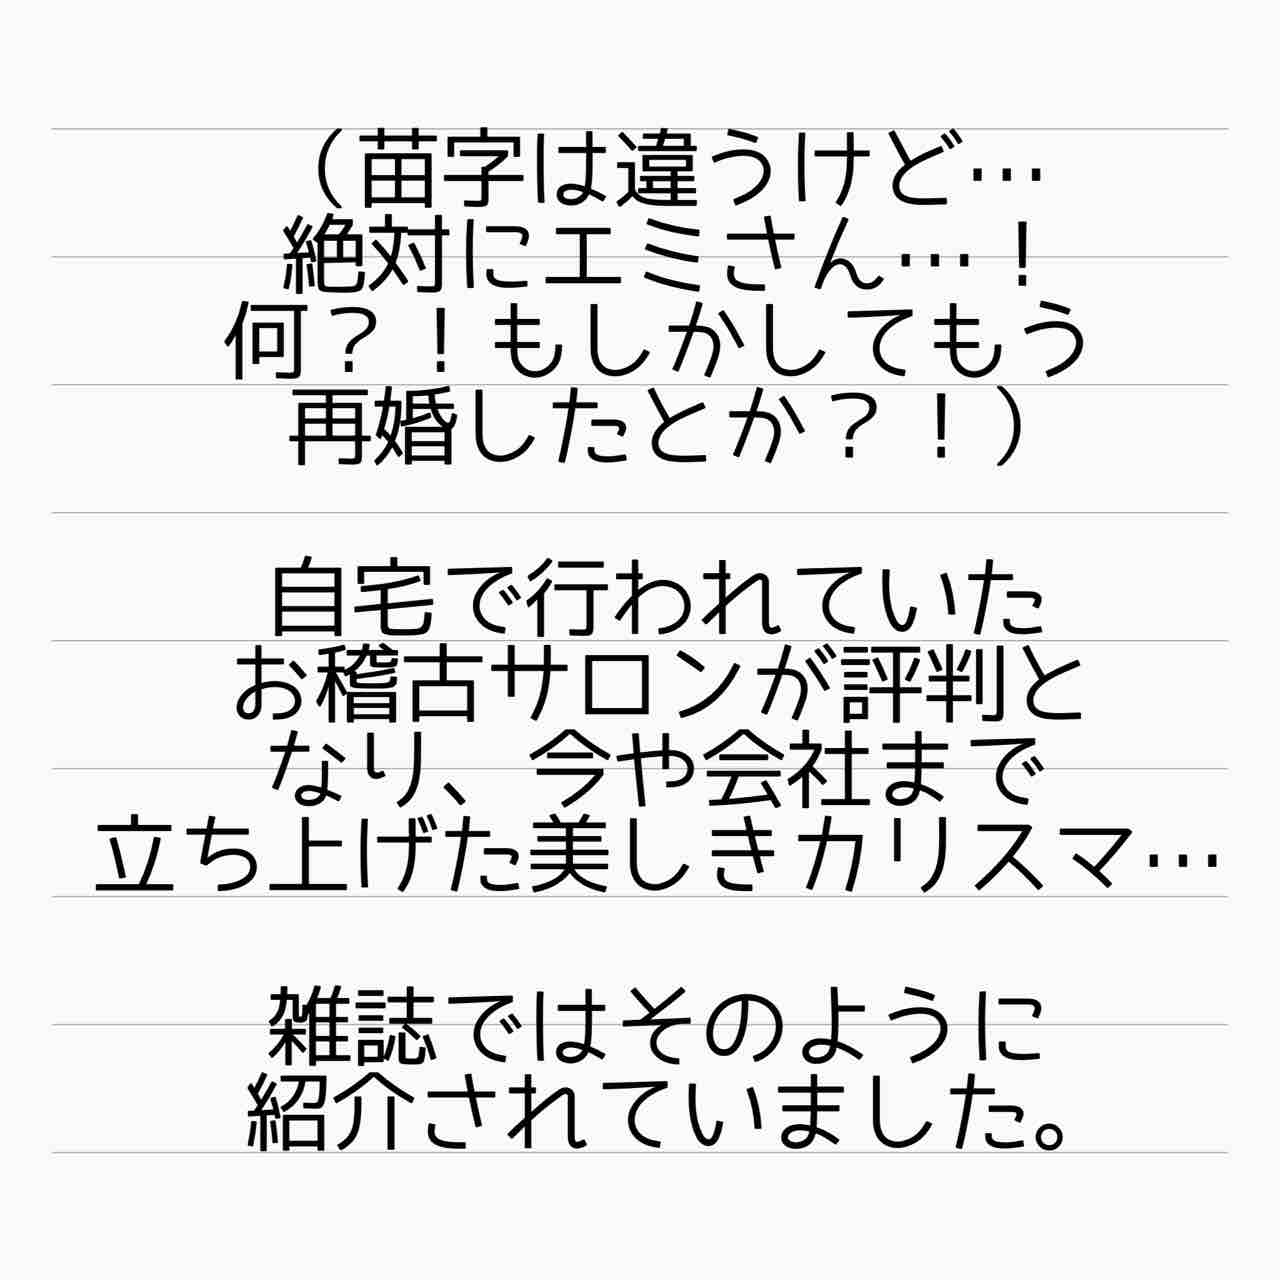 （苗字は違うけど…
絶対にエミさん…！
何？！もしかしてもう
再婚したとか？！）
自宅で行われていた
お稽古サロンが評判と
なり、今や会社まで
立ち上げた美しきカリスマ…
雑誌ではそのように
紹介されていました。